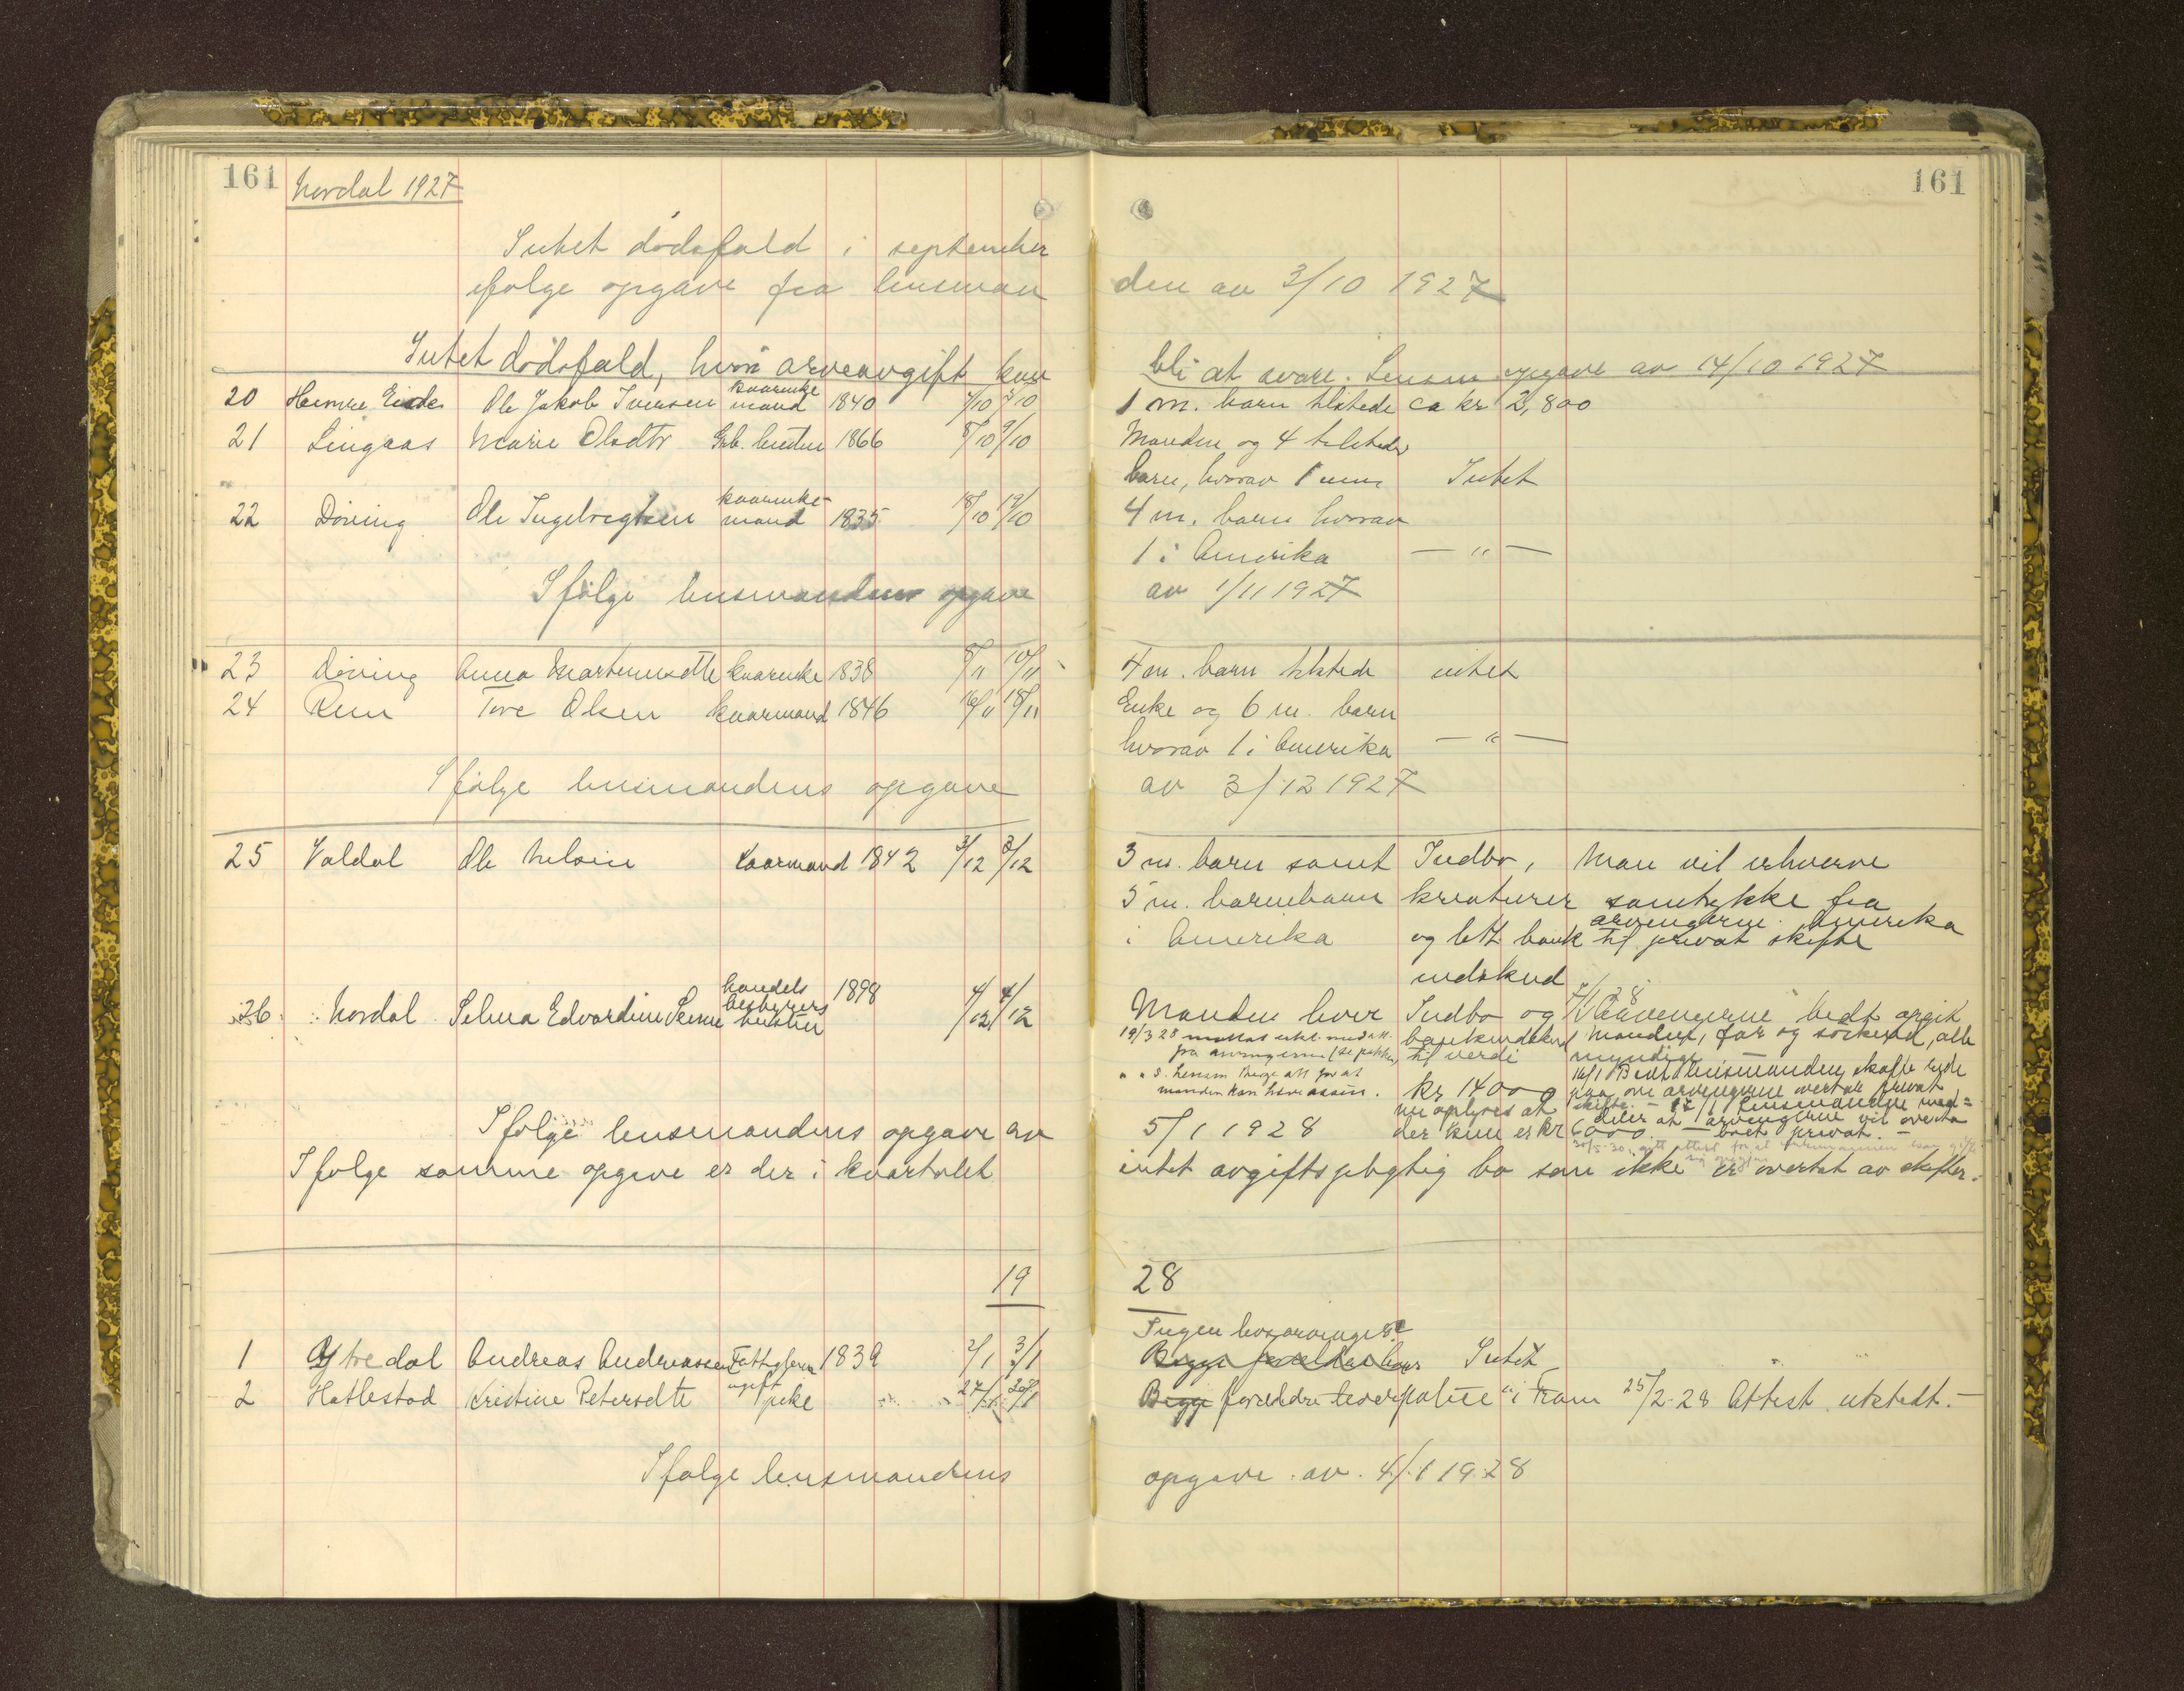 161 Nordal 1927 161
Intet dødsfald i september
ifølge opgave fra lensman den av 3/10 1927
Intet dødsfald, hvori arveavgift kan bli at svare. Lensm opgave av 14/10 1927
20 Eide Ole Jakob Iversen kaarenke mand 1840 /10 /10 1 m. barn tilstede ca kr 2,800
21 Lingaas Marie Olsdtr Grb. hustru 1866 8/10 9/10 Manden og 4 tilstede
barn, hvorav 1 um Intet
22 Døving Ole Ingebregtsen kaarenke-mand 1835 18/10 19/10 4 m. barn hvorav
1 i Amerika — " —
Ifølge lensmandens opgave av 1/11 1927
23 Døving Anna Martinusdtr kaarenke 1838 8/11 10/11 4 m. barn tilstede intet
24 Rem Tore Olsen kaarmand 1846 16/11 18/11 Enke og 6 m. barn
hvorav 1 i Amerika — " —
Ifølge lensmandens opgave av 3/12 1927
25 Valdal Ole Nilsen kaarmand 1842 3/12 3/12 3 m. barn samt Indbo, Man vil erhverve
5 m. barnebarn kreaturer samtykke fra
arvingerne i Amerika
i Amerika og litt bank til privat skifte
indskud
7/1 28
26 Nordal Selma Edvardine handels bestyrers hustru 1898 4/12 4/12 Manden lever Indbo og Arvingerne bedt opgit
19/3 28 bankindskud Manden, far og søskend, alle
fra arvingerne (se pakken) til verdi myndige —
manden kan have kr 14000 16/1 Bedt lensmanden skaffe rede
paa, om arvingerne overtar privat
nu oplyses at skifte. — 17/1 Lensmanden med=
der kun er kr 6000 deler at arvingerne vil overta
boet privat. —
Ifølge lensmandens opgave av 5/1 1928
Ifølge samme opgave er der i kvartalet intet avgiftspligtig bo som ikke er overtat av skifter.
19 28
Ingen livsarvinger
1 Ytredal Andreas Andreassen Fattiglem 1839 2/1 3/1 Begge foreldre lever Intet
2 Hatlestad Kristine Petersdtr ugift pike 27/1 28/1 Begge foreldre lever police i Fram 25/2-28 Attest utstedt. —
Ifølge lensmandens opgave av 4/1 1928